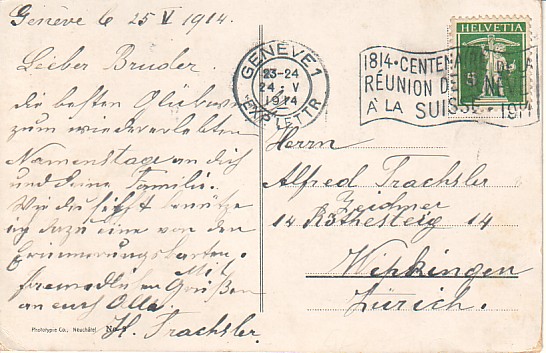 Genève le 25 V 1914.
Lieber Bruder.
die besten Glückwün
zum wiedererlebten
Namenstage an dich
und deine Familie.
Wie du siehst benütze
ich dazu eine von den
Erinnerungskarten.
Mit
freundlichen Grüßen
an euch Alle.
H. Trachsler.
Phototypie Co., Neuchâtel.
GENÈVE 1
23-24
24. V
1914
EXP. LETTR.
HELVETIA
5
1814 • CENTENAIRE DE LA
RÉUNION DE GENÈVE
À LA SUISSE • 1914
Herrn
Alfred Trachsler
Zeichner
14 Röthesteig 14
Wipkingen
Zürich.